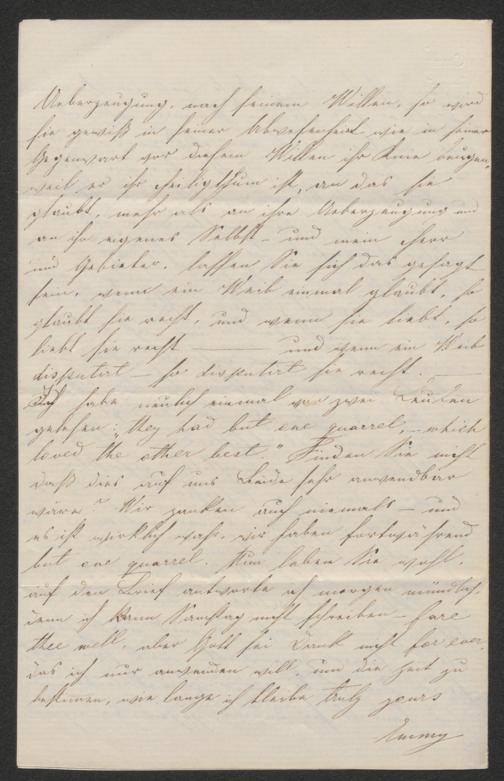 Ueberzeugung, nach seinem Willen, so wird
sie gewiß in seiner Abwesenheit wie in seiner
Gegenwart vor diesem Willen ihr Knie beugen,
weil er ihr Heiligthum ist, an das sie
glaubt, mehr als an ihre Ueberzeugung und
an ihr eigenes Selbst – und mein Herr
und Gebieter, lassen Sie sich das gesagt
sein, wenn ein Weib einmal glaubt, so
glaubt sie recht, und wenn sie liebt, so
liebt sie recht ——— und wenn ein Weib
disputirt – so disputirt sie recht. —
Ich habe neulich einmal von zwei Leuten
gelesen: "they had but one quarrel, – which
loved the other best." Finden Sie nicht
daß dies auf uns Beide sehr anwendbar
wäre? Wir zanken auch niemals – und
es ist wirklich wahr, wir haben fortwährend
but one quarrel. Nun leben Sie wohl,
auf den Brief antworte ich morgen mündlich,
denn ich kann Samstag nicht schreiben – fare
thee well, aber Gott sei Dank nicht for ever,
das ich nur anwenden will, um die Zeit zu
bestimmen, wie lange ich bleibe truly yours
Emmy